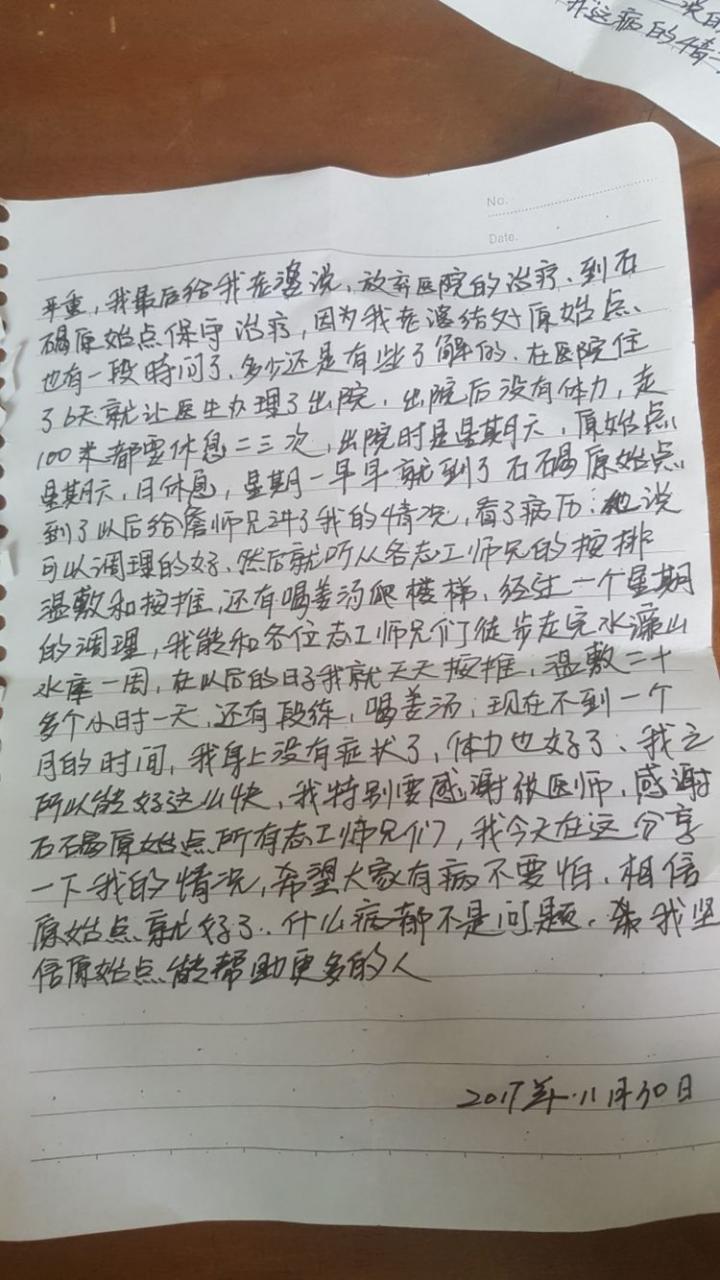 次的
我这病的情
No.
Date.
严重，我最后给我老婆说，放弃医院的治疗，到石
碣原始点保守治疗，因为我老婆结效原始点、
也有一段时间了，多少还是有些了解的，在医院住
了6天就让医生办理了出院，出院后没有体力，走
100米都要休息二三次，出院时是星期天，原始点
星期六，日休息，星期一早早就到了石碣原始点，
到了以后给詹师兄讲了我的情况，看了病历：他说
可以调理的好、然后就听从各志工师兄的按排
温敷和按推，还有喝姜汤爬楼梯，经过一个星期
的调理，我能和各位志工师兄们徒步走完水濂山
水库一周，在以后的日子我就天天按推，温敷二十
多个小时一天，还有段练，喝姜汤；现在不到一个
月的时间，我身上没有症状了，体力也好了、我之
所以能好这么快，我特别要感谢张医师，感谢
石碣原始点所有志工师兄们，我今天在这分享
一下我的情况，希望大家有病不要怕，相信
原始点就好了．什么病都不是问题，我坚
信原始点能帮助更多的人
2017年.11月30日